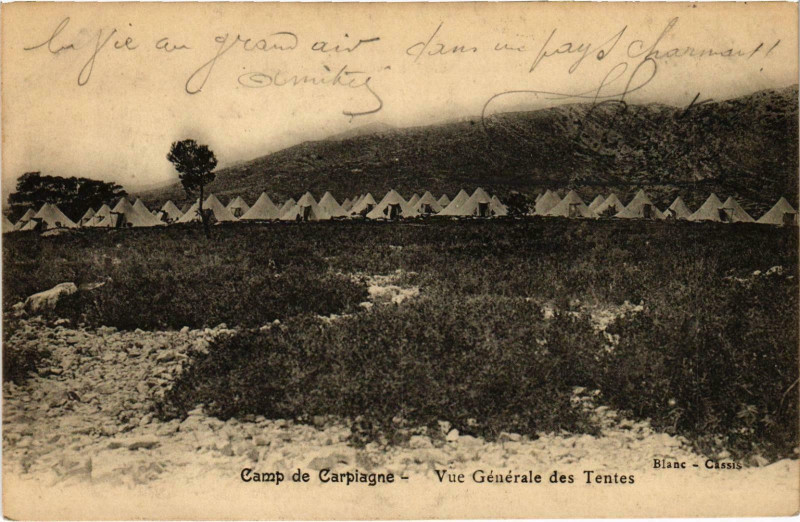 la vie au grand air dans un pays charmant !!
Amitiés
Camp de Carpiagne - Vue Générale des Tentes
Blanc - Cassis